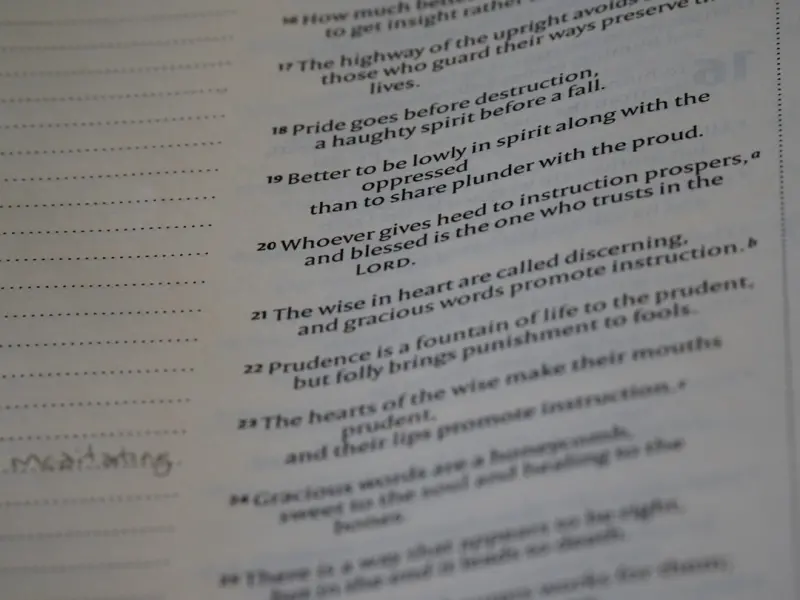 16 How much better
to get insight rather
17 The highway of the upright avoids
those who guard their ways preserve
lives.
18 Pride goes before destruction,
a haughty spirit before a fall.
19 Better to be lowly in spirit along with the
oppressed
than to share plunder with the proud.
20 Whoever gives heed to instruction prospers, a
and blessed is the one who trusts in the
LORD.
21 The wise in heart are called discerning,
and gracious words promote instruction. b
22 Prudence is a fountain of life to the prudent,
but folly brings punishment to fools.
23 The hearts of the wise make their mouths
prudent,
and their lips promote instruction. c
24 Gracious words are a honeycomb,
sweet to the soul and healing to the
bones.
25 There is a way that appears to be right,
but in the end it leads to death.
works for them;